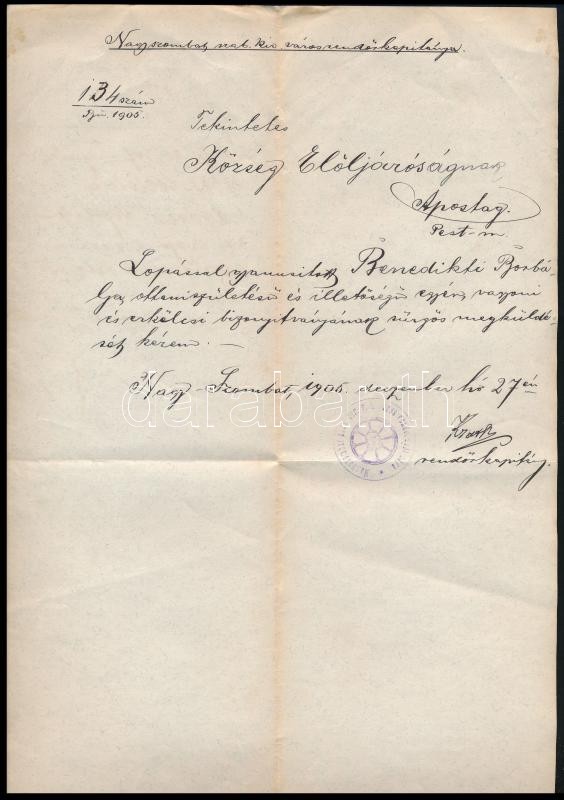 Nagyszombat szab. kir. város rendőrkapitánya.
134 szám
1905.
Tekintetes
Község Elöljáróságnak
Apostag.
Pest-m.
Lopással gyanusitott Benedikti Borbá-
lya ottani születésű és illetőségű egyén vagyoni
és erkölcsi bizonyitványának sürgős megküldé-
sét kérem. —
Nagy-Szombat, 1905. deczember hó 27 én
rendőrkapitány.
darabanth